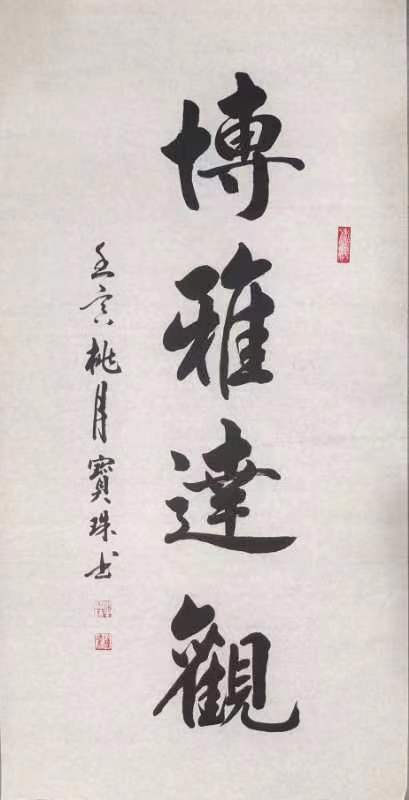 博雅達觀
壬寅桃月寶珠书